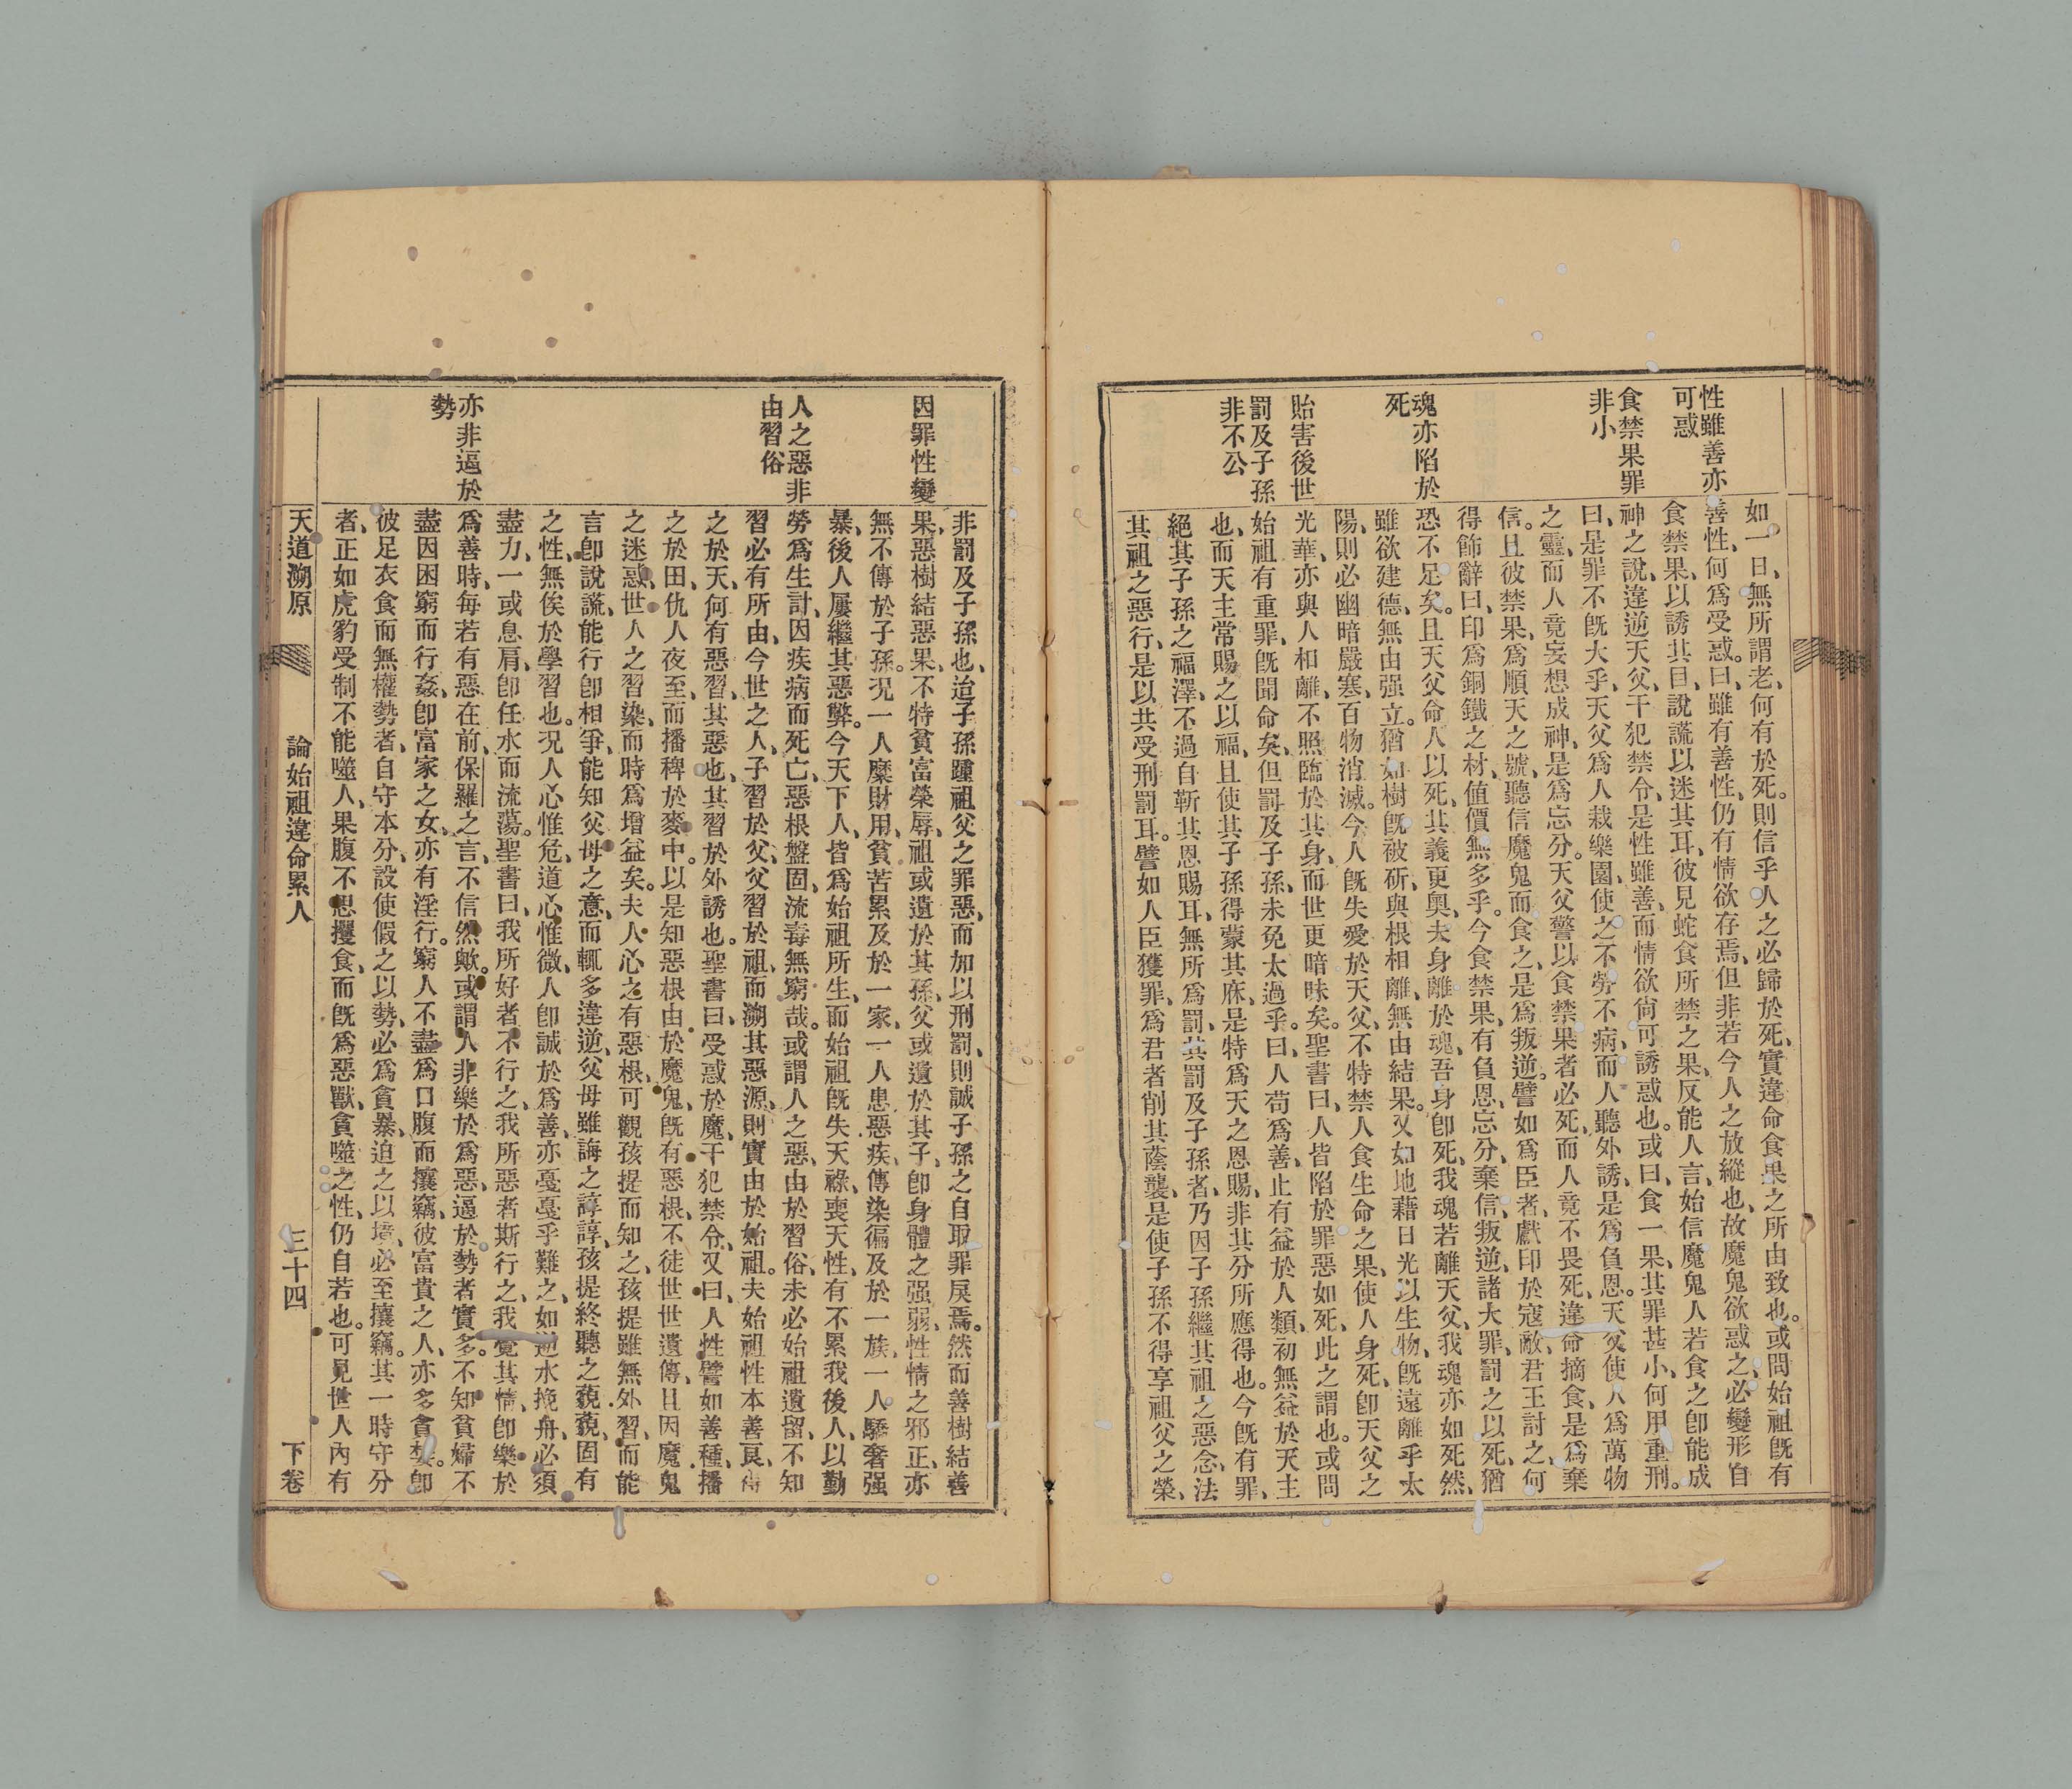 性雖善亦
可惑
食禁果罪
非小
魂亦陷於
死
貽害後世
罰及子孫
非不公
如一日、無所謂老、何有於死。則信乎人之必歸於死、實違命食果之所由致也。或問始祖既有
善性、何爲受惑。曰、雖有善性、仍有情欲存焉、但非若今人之放縱也、故魔鬼欲惑之、必變形自
食禁果、以誘其目、說謊以迷其耳、彼見蛇食所禁之果、反能人言、始信魔鬼人若食之卽能成
神之說、違逆天父、干犯禁令、是性雖善、而情欲尚可誘惑也。或曰、食一果、其罪甚小、何用重刑。
曰、是罪不既大乎、天父爲人栽樂園、使之不勞不病、而人聽外誘、是爲負恩。天父使人爲萬物
之靈、而人竟妄想成神、是爲忘分。天父警以食禁果者必死、而人竟不畏死、違命摘食、是爲棄
信。且彼禁果、爲順天之號、聽信魔鬼而食之、是爲叛逆。譬如爲臣者、獻印於寇敵、君王討之、何
得飾辭曰、印爲銅鐵之材、值價無多乎。今食禁果、有負恩、忘分、棄信、叛逆、諸大罪、罰之以死、猶
恐不足矣。且天父命人以死、其義更奧、夫身離於魂、吾身卽死、我魂若離天父、我魂亦如死然、
雖欲建德、無由强立。猶如樹既被斫、與根相離、無由結果。又如地藉日光以生物、既遠離乎太
陽、則必幽暗嚴寒、百物消滅。今人既失愛於天父、不特禁人食生命之果、使人身死、卽天父之
光華、亦與人相離、不照臨於其身、而世更暗昧矣。聖書曰、人皆陷於罪惡如死、此之謂也。或問
始祖有重罪、既聞命矣、但罰及子孫、未免太過乎。曰、人苟爲善、止有益於人類、初無益於天主
也、而天主常賜之以福、且使其子孫得蒙其庥、是特爲天之恩賜、非其分所應得也。今既有罪、
絕其子孫之福澤、不過自靳其恩賜耳、無所爲罰、其罰及子孫者、乃因子孫繼其祖之惡念、法
其祖之惡行、是以共受刑罰耳。譬如人臣獲罪、爲君者削其蔭襲、是使子孫不得享祖父之榮、
因罪性變
人之惡非
由習俗
亦非逼於
勢
非罰及子孫也、迨子孫踵祖父之罪惡、而加以刑罰、則誠子孫之自取罪戾焉。然而善樹結善
果、惡樹結惡果、不特貧富榮辱、祖或遺於其孫、父或遺於其子、卽身體之强弱、性情之邪正、亦
無不傳於子孫。況一人糜財用、貧苦累及於一家、一人患惡疾、傳染徧及於一族、一人驕奢强
暴、後人屢繼其惡弊。今天下人、皆爲始祖所生、而始祖既失天祿、喪天性、有不累我後人、以勤
勞爲生計、因疾病而死亡、惡根盤固、流毒無窮哉。或謂人之惡、由於習俗、未必始祖遺留、不知
習必有所由、今世之人、子習於父、父習於祖、而溯其惡源、則實由於始祖。夫始祖性本善良、傳
之於天、何有惡習、其惡也、其習於外誘也。聖書曰、受惑於魔、干犯禁令、又曰、人性譬如善種、播
之於田、仇人夜至、而播稗於麥中。以是知惡根由於魔鬼、既有惡根、不徒世世遺傳、且因魔鬼
之迷惑、世人之習染、而時爲增益矣。夫人心之有惡根、可觀孩提而知之、孩提雖無外習、而能
言卽說謊、能行卽相爭、能知父母之意、而輒多違逆、父母雖誨之諄諄、孩提終聽之藐藐、固有
之性、無俟於學習也。況人心惟危、道心惟微、人卽誠於爲善、亦戞戞乎難之、如逆水挽舟、必須
盡力、一或息肩、卽任水而流蕩。聖書曰、我所好者不行之、我所惡者斯行之、我覺其情、卽樂於
爲善時、每若有惡在前、保羅之言、不信然歟。或謂人非樂於爲惡、逼於勢者實多。不知貧婦不
盡因困窮而行姦、卽富家之女、亦有淫行。窮人不盡爲口腹而攘竊、彼富貴之人、亦多貪婪。卽
彼足衣食而無權勢者、自守本分、設使假之以勢、必爲貪暴、迫之以境、必至攘竊。其一時守分
者、正如虎豹受制不能噬人、果腹不思攫食、而既爲惡獸、貪噬之性、仍自若也。可見世人內有
天道溯原
論始祖違命累人
三十四
下卷